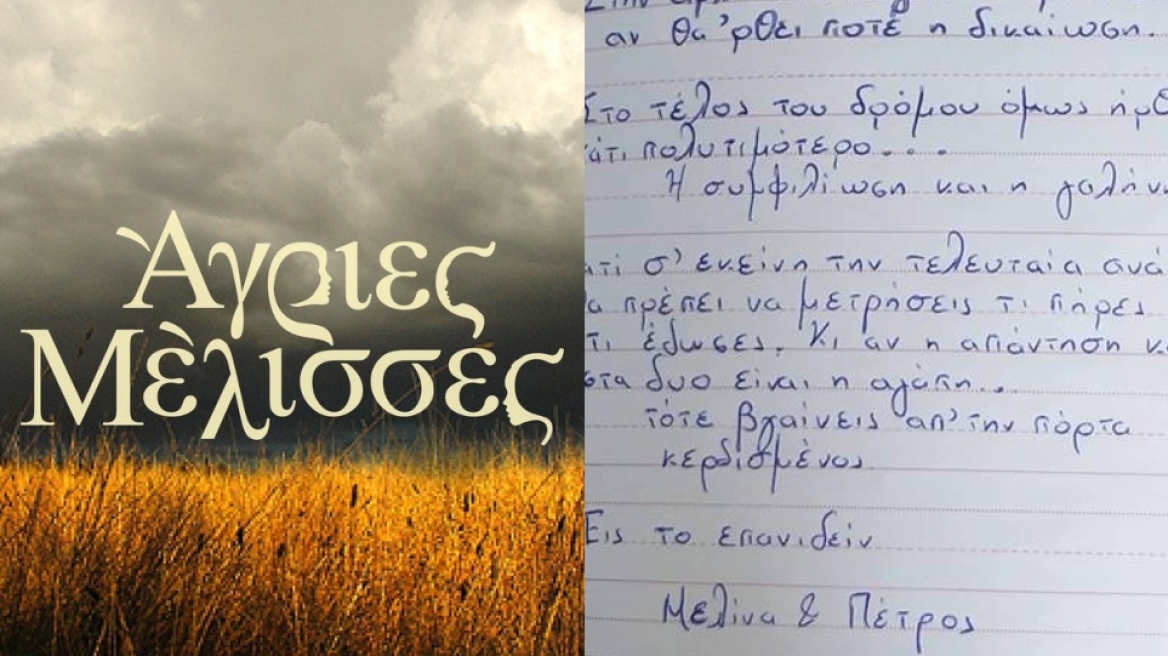 Άγριες
Μέλισσες
αν θα 'ρθει ποτέ η δικαίωση...
Στο τέλος του δρόμου όμως
πολυτιμότερο....
Η συμφιλίωση και η
σ' εκείνη την τελευταία
πρέπει να μετρήσεις τι πήρες
τι έδωσες. Κι αν η απάντηση
στα δυο είναι η αγάπη...
τότε βγαίνεις απ' την πόρτα
κερδισμένος.
Εις το επανιδείν
Μελίνα & Πέτρος